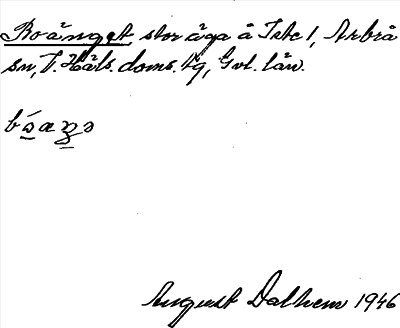 Boänget stor äga å Iste 1, Arbrå
sn, V. Häls. doms. tg, Gvl. län.
August Dalhem 1946